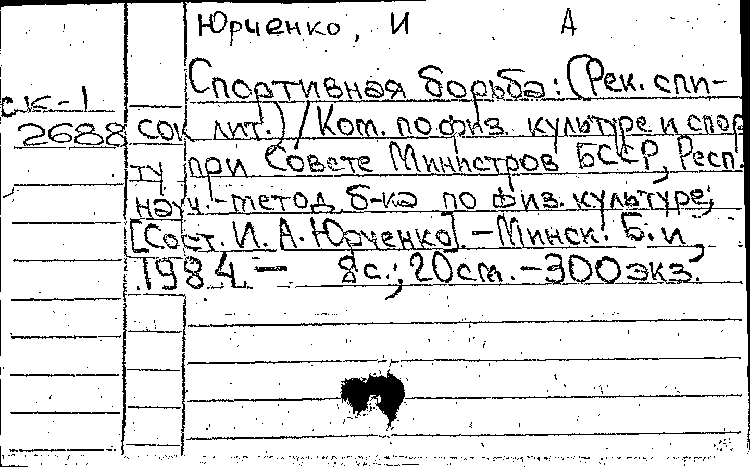 Юрченко, И А
Спортивная борьба: (Рек. спи-
ск-1
2688 сок лит.) / Ком. по физ. культуре и спор
ту при Совете Министров БССР, Респ.
науч.-метод б-ка по физ. культуре;
[Сост. И. А. Юрченко]. - Минск: Б. и,
1984. - 8 с.; 20 см. - 300 экз.